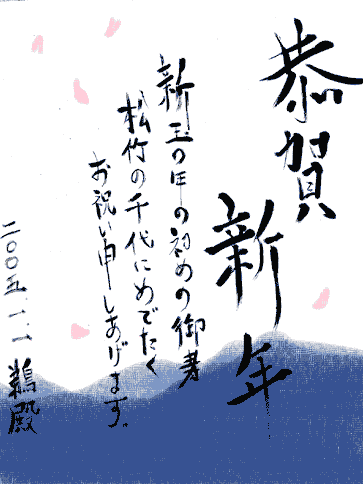 恭賀
新年
新玉の年の初めの御寿
松竹の千代にめでたく
お祝い申しあげます。
二〇〇五.一.一
鵜殿